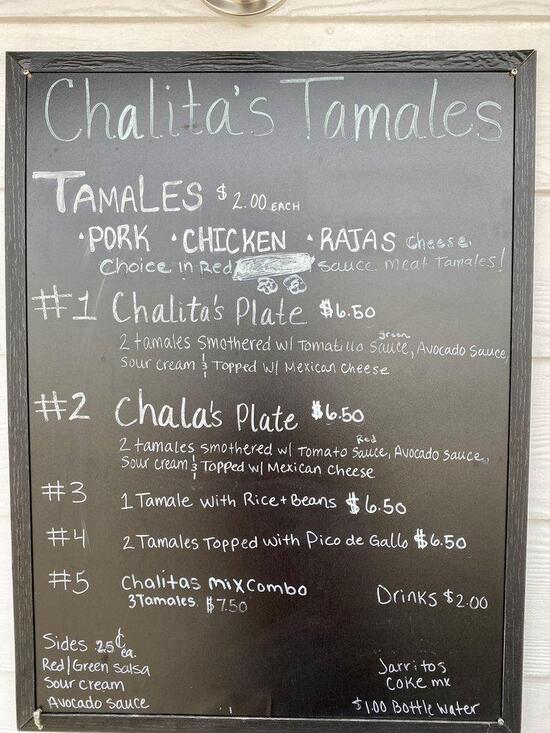 Chalita's Tamales
TAMALES $2.00 EACH
•PORK •CHICKEN •RAJAS cheese.
Choice in Red sauce meat Tamales!
#1 Chalita's Plate $6.50
green
2 tamales smothered w/ Tomatillo sauce, Avocado Sauce,
Sour cream & Topped w/ Mexican Cheese
#2 Chala's Plate $6.50
Red
2 tamales smothered w/ Tomato Sauce, Avocado sauce,
Sour cream & Topped w/ Mexican Cheese
#3 1 Tamale with Rice + Beans $6.50
#4 2 Tamales Topped with Pico de Gallo $6.50
#5 Chalitas mix Combo
3 Tamales. $7.50
Drinks $2.00
Sides 25¢ ea.
Red/Green Salsa
Sour cream
Avocado sauce
Jarritos
Coke mx
$1.00 Bottle water